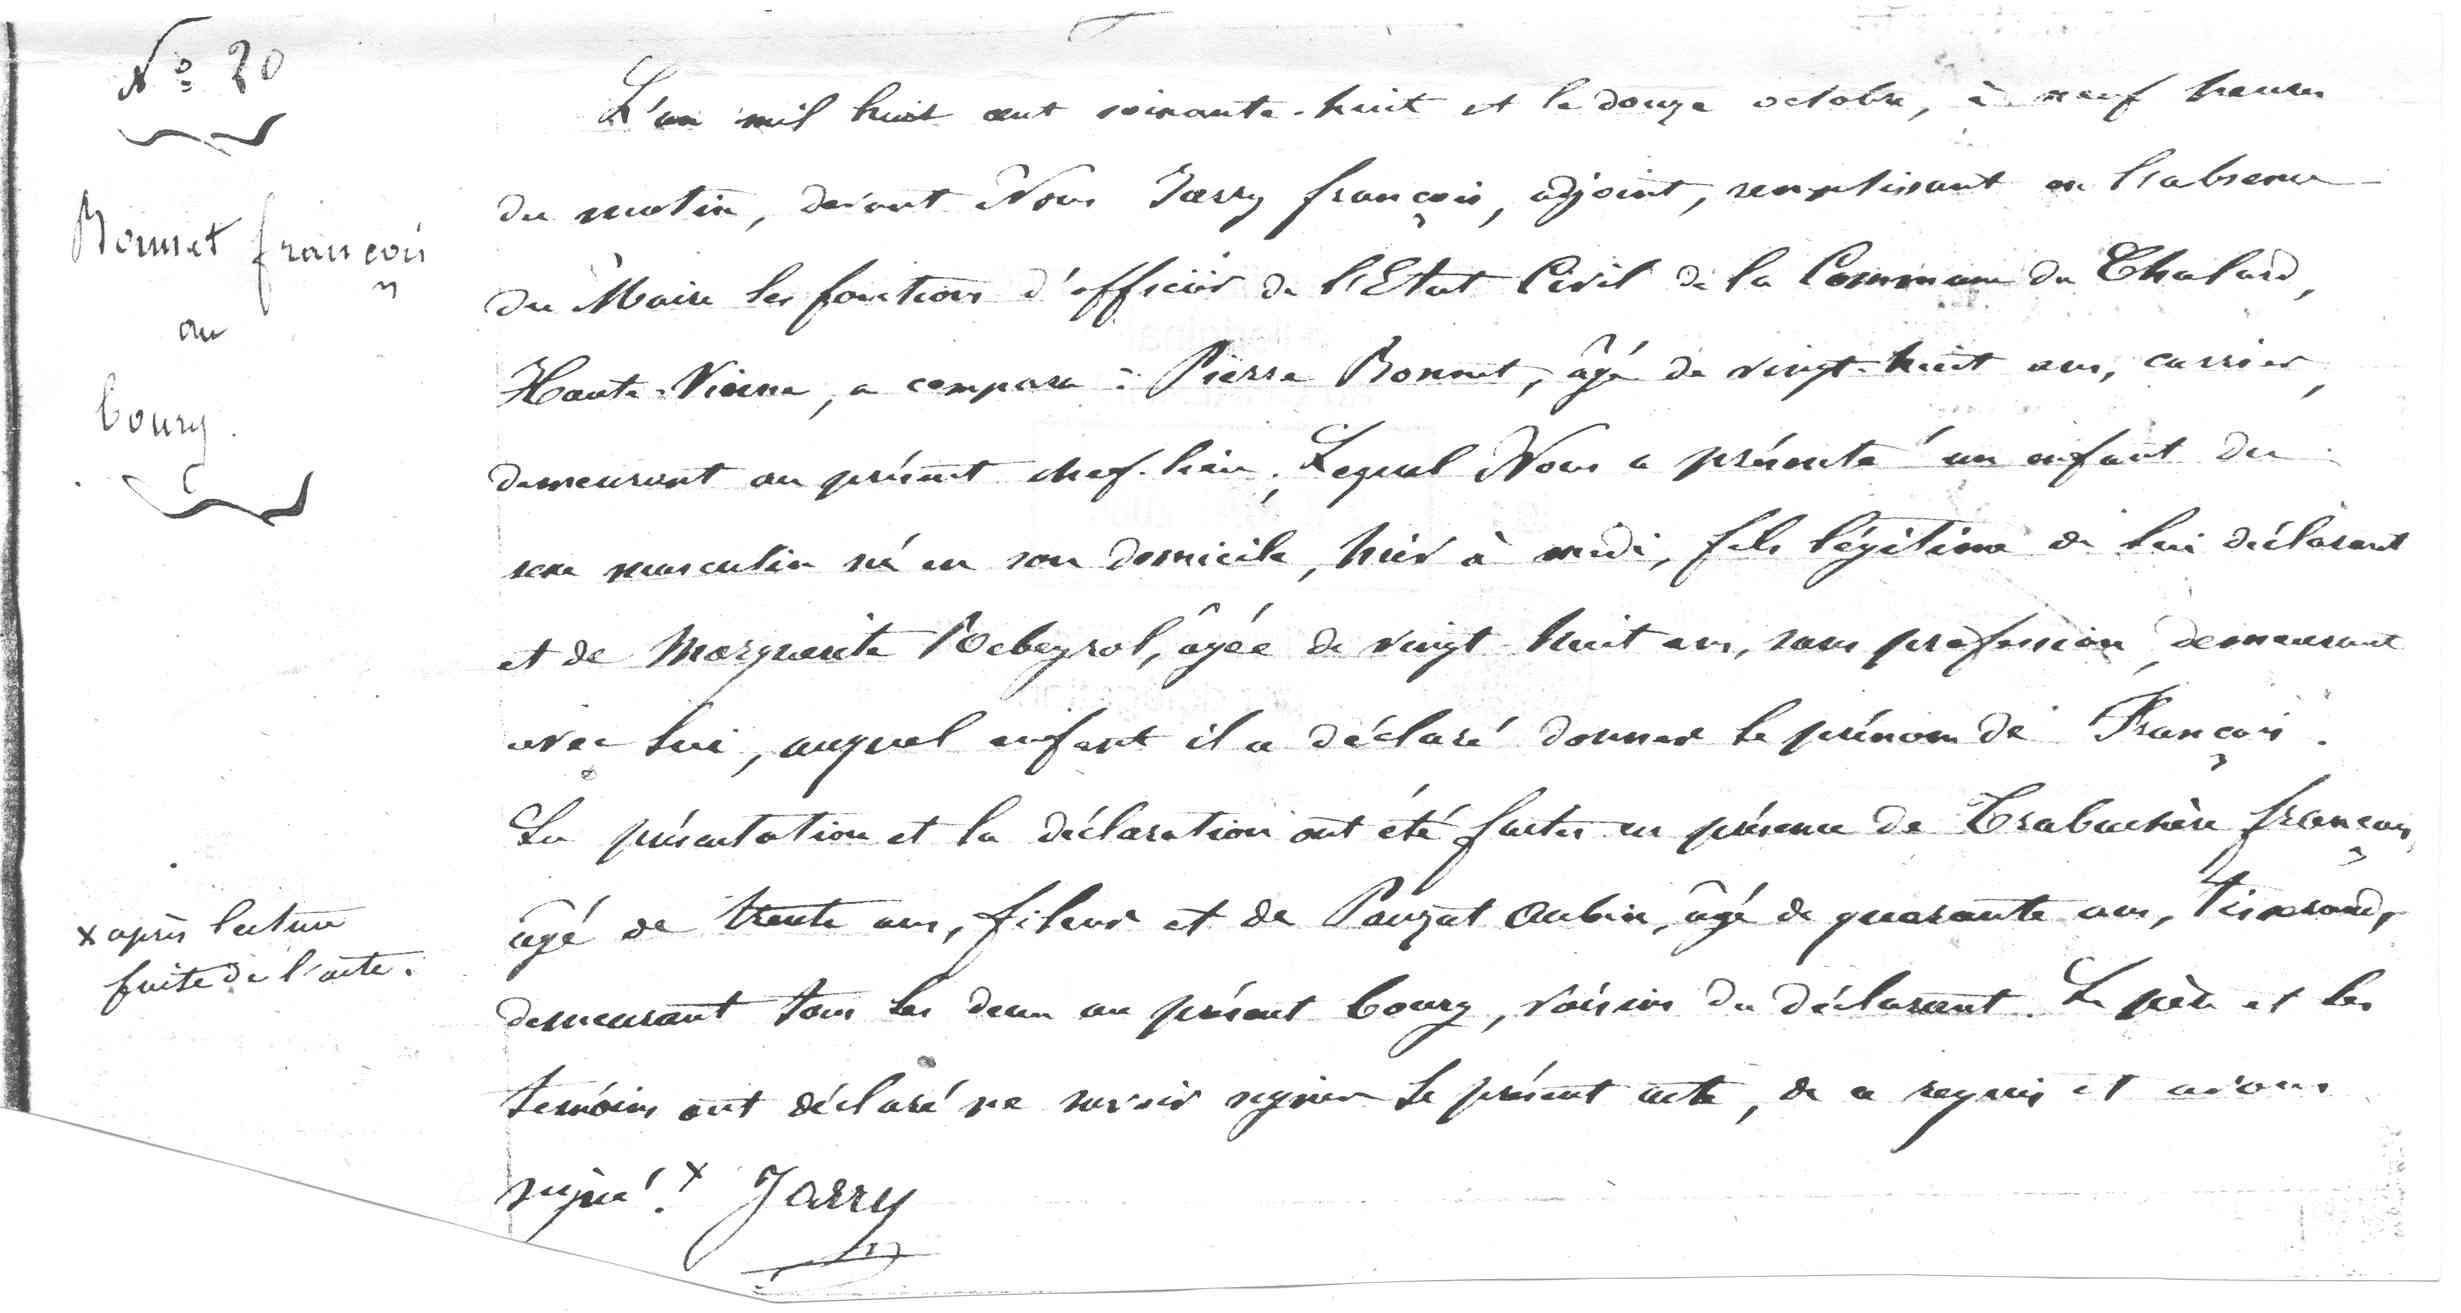 N° 20
Bonnet françois
au
bourg.
L'an mil huit cent soixante-huit et le douze octobre, à neuf heures
du matin, devant Nous Jarry françois, adjoint, remplissant en l'absence
du Maire les fonctions d'officier de l'Etat Civil de la Commune du Chalard,
Haute-Vienne, a comparu : Pierre Bonnet, âgé de vingt-huit ans, carrier,
demeurant au présent chef-lieu; Lequel Nous a présenté un enfant du
sexe masculin né en son domicile, hier à midi, fils légitime de lui déclarant
et de Marguerite Rebeyrol, âgée de vingt-huit ans, sans profession, demeurant
avec lui, auquel enfant il a déclaré donner le prénom de François.
La présentation et la déclaration ont été faites en présence de Trabuchère françois,
âgé de trente ans, fileur et de Pouzat Aubin, âgé de quarante ans, tisserand,
demeurant tous les deux au présent bourg, voisins du déclarant. Le père et les
témoins ont déclaré ne savoir signer le présent acte, de ce requis et avons
signé. x Jarry
x après lecture
faite de l'acte.